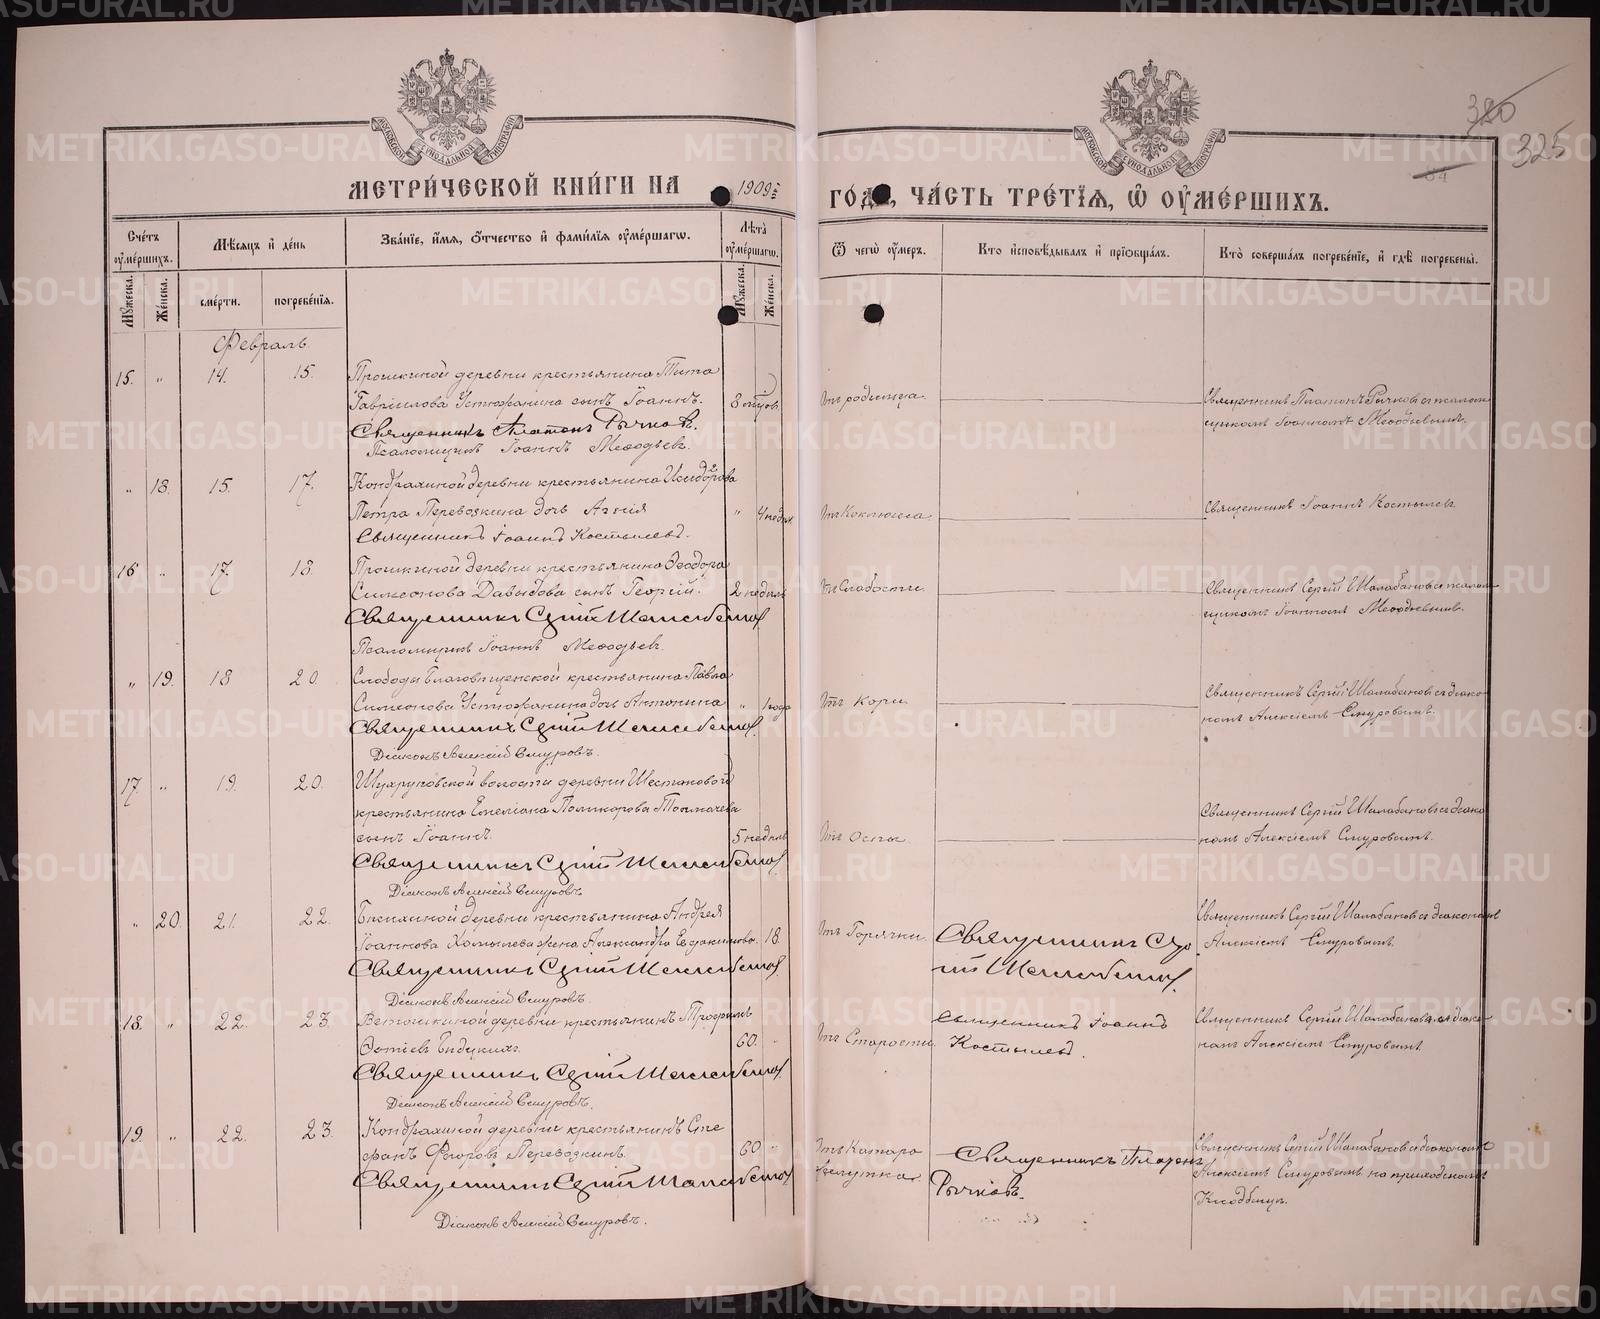 МЕТРИЧЕСКОЙ КНИГИ НА 1909 ГОДЪ, ЧАСТЬ ТРЕТІЯ, Ѿ ОУМЕРШИХЪ.
380
325
Счетъ оумершихъ.
Мѣсяцъ и день
Званіе, имя, отчество и фамилія оумершагѡ.
Лѣта оумершагѡ.
Ѿ чегѡ оумеръ.
Кто исповѣдывалъ и пріѡбщалъ.
Кто совершалъ погребеніе, и гдѣ погребены.
Мужеска.
Женска.
смерти.
погребенія.
Мужеска.
Женска.
Февраль.
15. „ 14. 15. Прошкиной деревни крестьянина Тита
Гавріилова Устюжанина сынъ Іоаннъ.
Отъ родимца.
Священникъ Платонъ Рычковъ съ псалом-
щикомъ Іоанномъ Меѳодьевымъ.
Священникъ Платонъ Рычковъ.
Псаломщикъ Іоаннъ Меѳодьевъ.
„ 18. 15. 17. Кондрахиной деревни крестьянина Исидорова
Петра Перевозкина дочь Агнія „ 4 недѣл.
Отъ Коклюша.
Священникъ Іоаннъ Костылевъ
Священникъ Іоаннъ Костылевъ.
16. „ 17. 18. Прошкиной деревни крестьянина Ѳеодора
Симеонова Давыдова сынъ Георгій. 2 недѣль
Отъ Слабости.
Священникъ Сергій Шалабановъ съ псалом-
щикомъ Іоанномъ Меѳодьевымъ.
Священникъ Сергій Шалабановъ.
Псаломщикъ Іоаннъ Меѳодьевъ.
„ 19. 18 20. Слободы Благовѣщенской крестьянина Павла
Симеонова Устюжанина дочь Антонина „ 1 года
Отъ Кори.
Священникъ Сергій Шалабановъ съ діако-
номъ Алексіемъ Смуровымъ.
Священникъ Сергій Шалабановъ.
Діаконъ Алексій Смуровъ.
17. „ 19. 20. волости деревни Шестаковой
крестьянина Емеліана Поликарпова Толмачева
сынъ Іоаннъ. 5 недѣль
Отъ Оспы.
Священникъ Сергій Шалабановъ съ діако-
номъ Алексіемъ Смуровымъ.
Священникъ Сергій Шалабановъ.
Діаконъ Алексій Смуровъ
„ 20. 21. 22. деревни крестьянина Андрея
Іоаннова жена Александра Евдокимова. 18.
Отъ Горячки.
Священникъ Сер-
гій Шалабановъ.
Священникъ Сергій Шалабановъ съ діакономъ
Алексіемъ Смуровымъ.
Священникъ Сергій Шалабановъ.
Діаконъ Алексій Смуровъ.
18. „ 22. 23. Ветошкиной деревни крестьянинъ Трофимъ
60. „
Отъ Старости.
Священникъ Іоаннъ
Костылевъ.
Священникъ Сергій Шалабановъ съ діако-
номъ Алексіемъ Смуровымъ.
Священникъ Сергій Шалабановъ.
Діаконъ Алексій Смуровъ.
19. „ 22. 23. Кондрахиной деревни крестьянинъ Сте-
фанъ Перевозкинъ. 60 „
Отъ Катара
желудка.
Священникъ Платонъ
Рычковъ.
Священникъ Сергій Шалабановъ съ діакономъ
Алексіемъ Смуровымъ на приходскомъ
Кладбищѣ.
Священникъ Сергій Шалабановъ.
Діаконъ Алексій Смуровъ.
METRIKI.GASO-URAL.RU